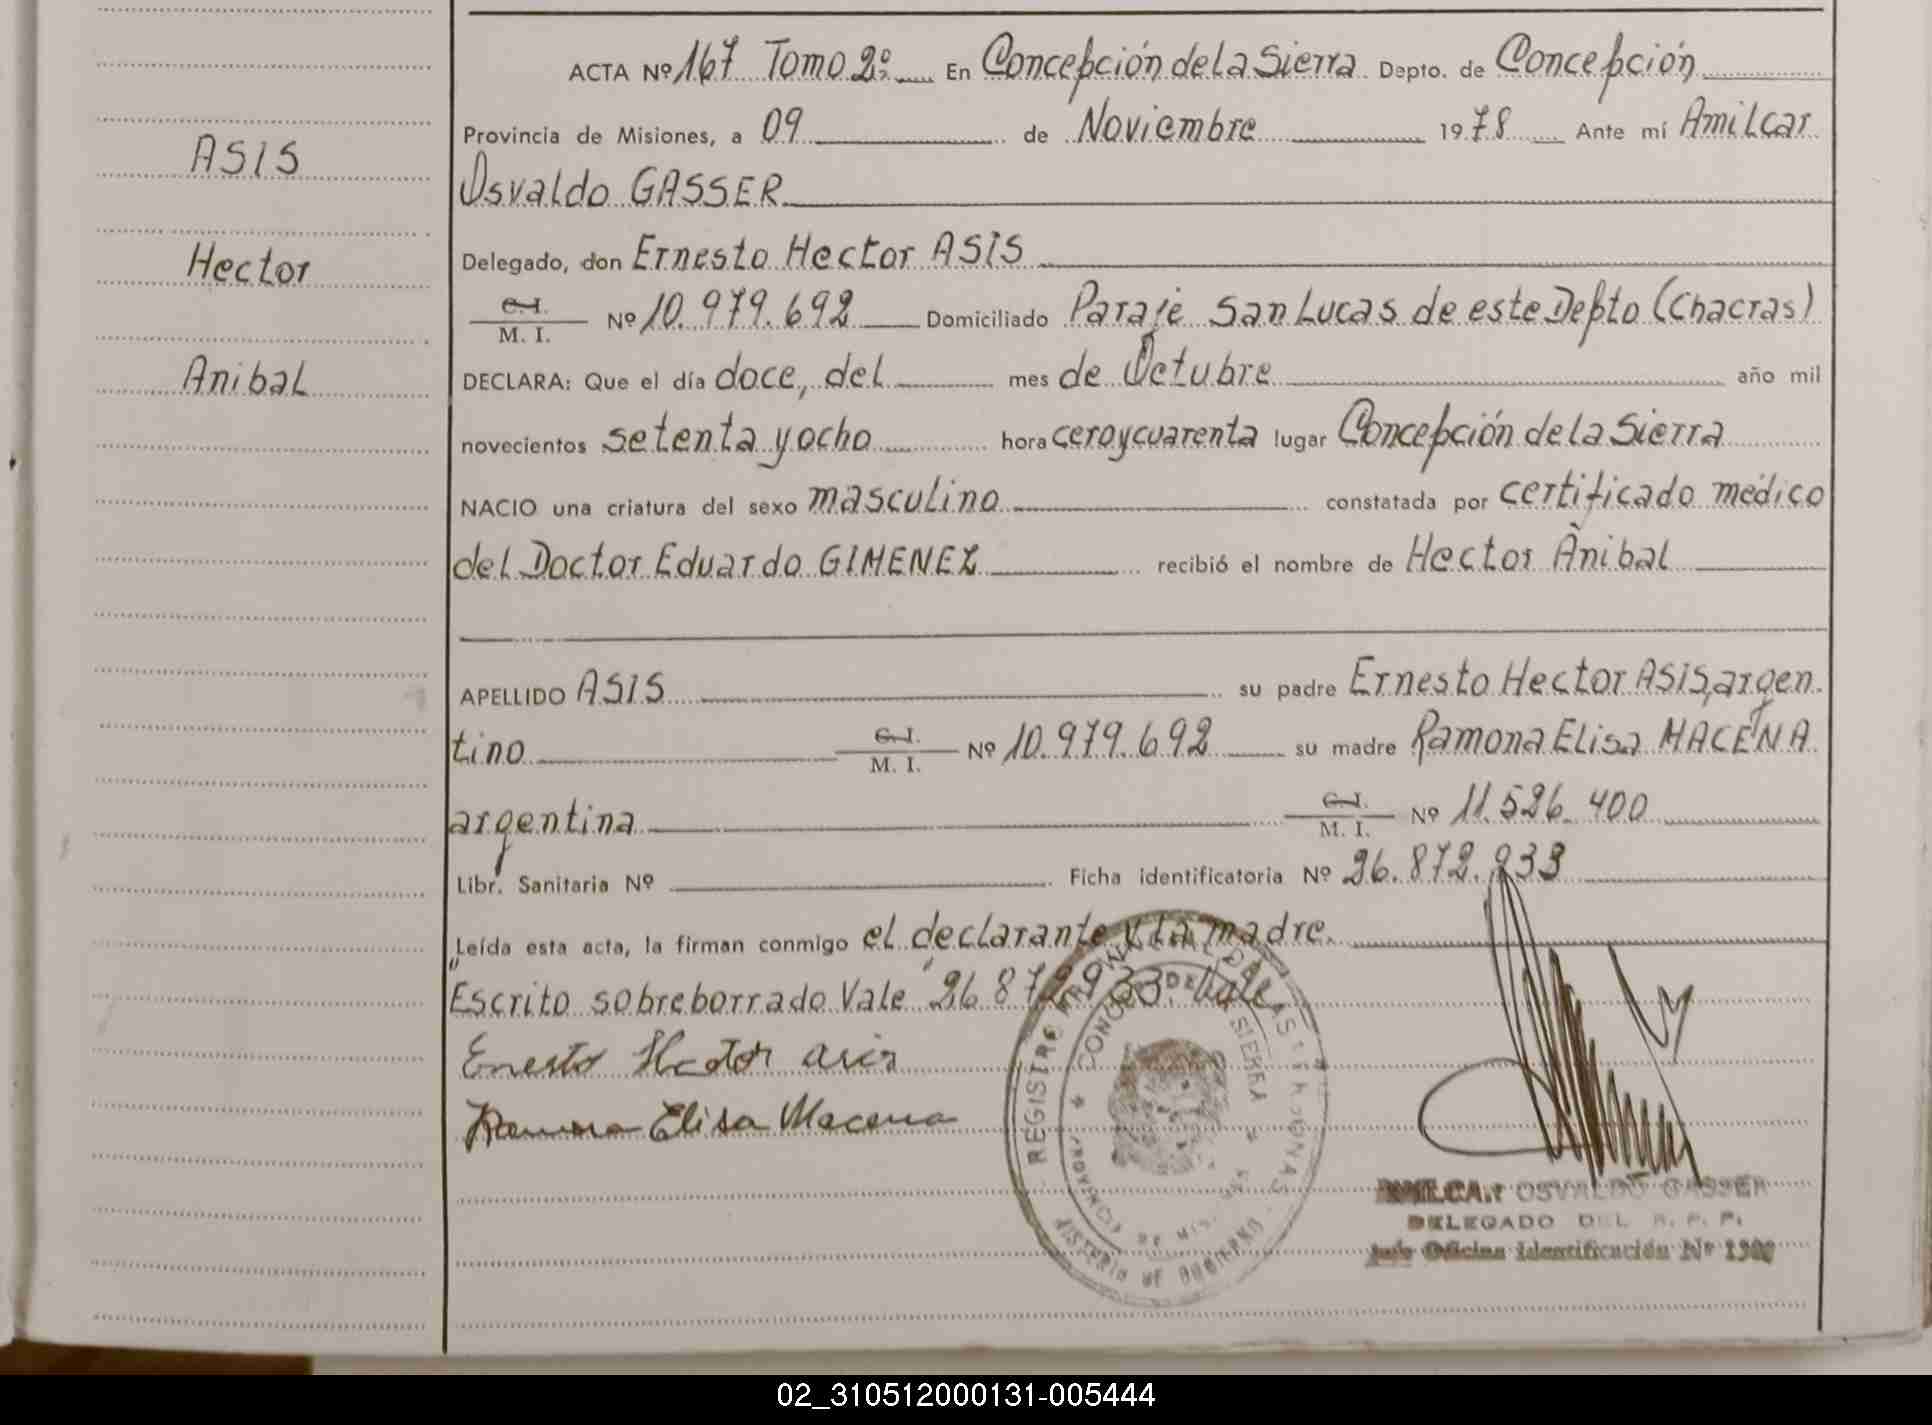 ASIS
Hector
Anibal
ACTA Nº 167 Tomo 2º En Concepción de la Sierra Depto. de Concepción
Provincia de Misiones, a 09 de Noviembre 1978 Ante mí Amilcar
Osvaldo GASSER
Delegado, don Ernesto Hector ASIS
C.I. M. I. Nº 10.979.692 Domiciliado Paraje San Lucas de este Depto (Chacras)
DECLARA: Que el día doce, del mes de Octubre año mil
novecientos setenta y ocho hora cero y cuarenta lugar Concepción de la Sierra
NACIO una criatura del sexo masculino constatada por certificado médico
del Doctor Eduardo GIMENEZ recibió el nombre de Hector Anibal
APELLIDO ASIS su padre Ernesto Hector ASIS, argen
tino C.I. M. I. Nº 10.979.692 su madre Ramona Elisa MACENA
argentina C.I. M. I. Nº 11.526.400
Libr. Sanitaria Nº Ficha identificatoria Nº 26.872.933
Leída esta acta, la firman conmigo el declarante y la madre.
"Escrito sobreborrado Vale" 26 872 933. Vale
Ernesto Hector Asis
Ramona Elisa Macena
REGISTRO DE LAS PERSONAS
CONCEPCION DE LA SIERRA
PROVINCIA DE MISIONES
MINISTERIO DE GOBIERNO
AMILCAR OSVALDO GASSER
DELEGADO DEL R. P. P.
Jefe Oficina Identificación Nº
02_310512000131-005444